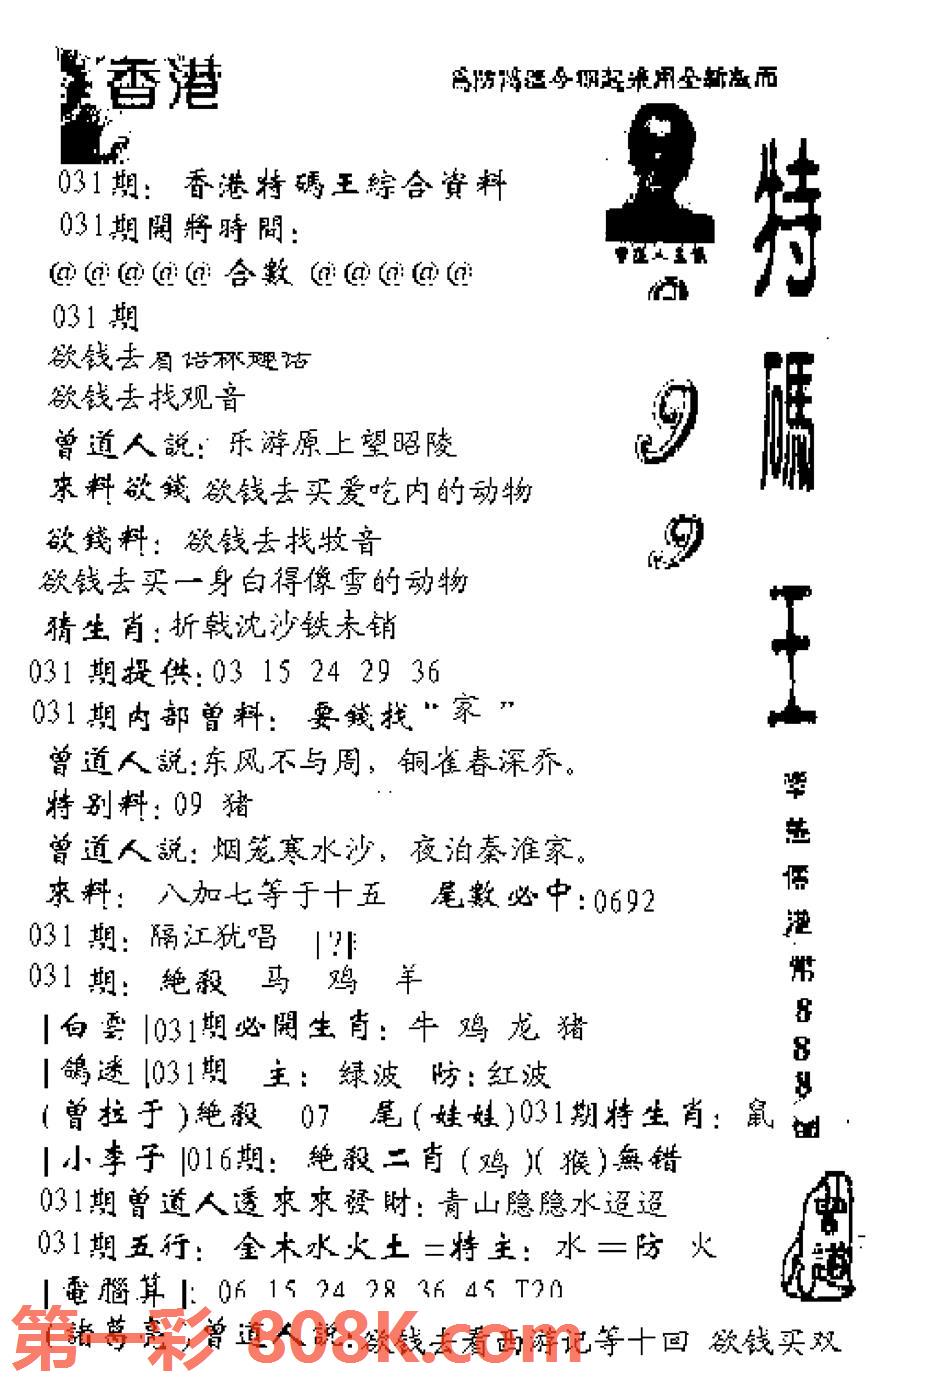 香港
特碼王
曾道人
031期：香港特碼王綜合資料
031期開將時間：
@@@@@合數@@@@@
031期
欲钱去看
欲钱去找观音
曾道人説：乐游原上望昭陵
來料欲錢 欲钱去买爱吃内的动物
欲錢料：欲钱去找牧音
欲钱去买一身白得像雪的动物
猜生肖：折戟沈沙铁未销
031期提供：03 15 24 29 36
031期内部曾料：要錢找“家”
曾道人説：东风不与周，铜雀春深乔。
特别料：09 猪
曾道人説：烟笼寒水沙，夜泊秦淮家。
來料：八加七等于十五 尾數必中：0692
031期：隔江犹唱 |?|
031期：絶殺 马 鸡 羊
|白雲|031期必開生肖：牛 鸡 龙 猪
|鴿迷|031期 主：绿波 防：红波
(曾拉于)絶殺 07 尾(娃娃)031期特生肖：鼠
|小李子|016期：絶殺二肖(鸡)(猴)無錯
031期曾道人透來來發財：青山隐隐水迢迢
031期五行：金木水火土=特主：水=防 火
|電腦算|：06 15 24 28 36 45 T20
(諸葛亮)曾道人説：欲钱去看西游记等十回 欲钱买双
9
9
港幣
888
曾道
第一彩 808K.com